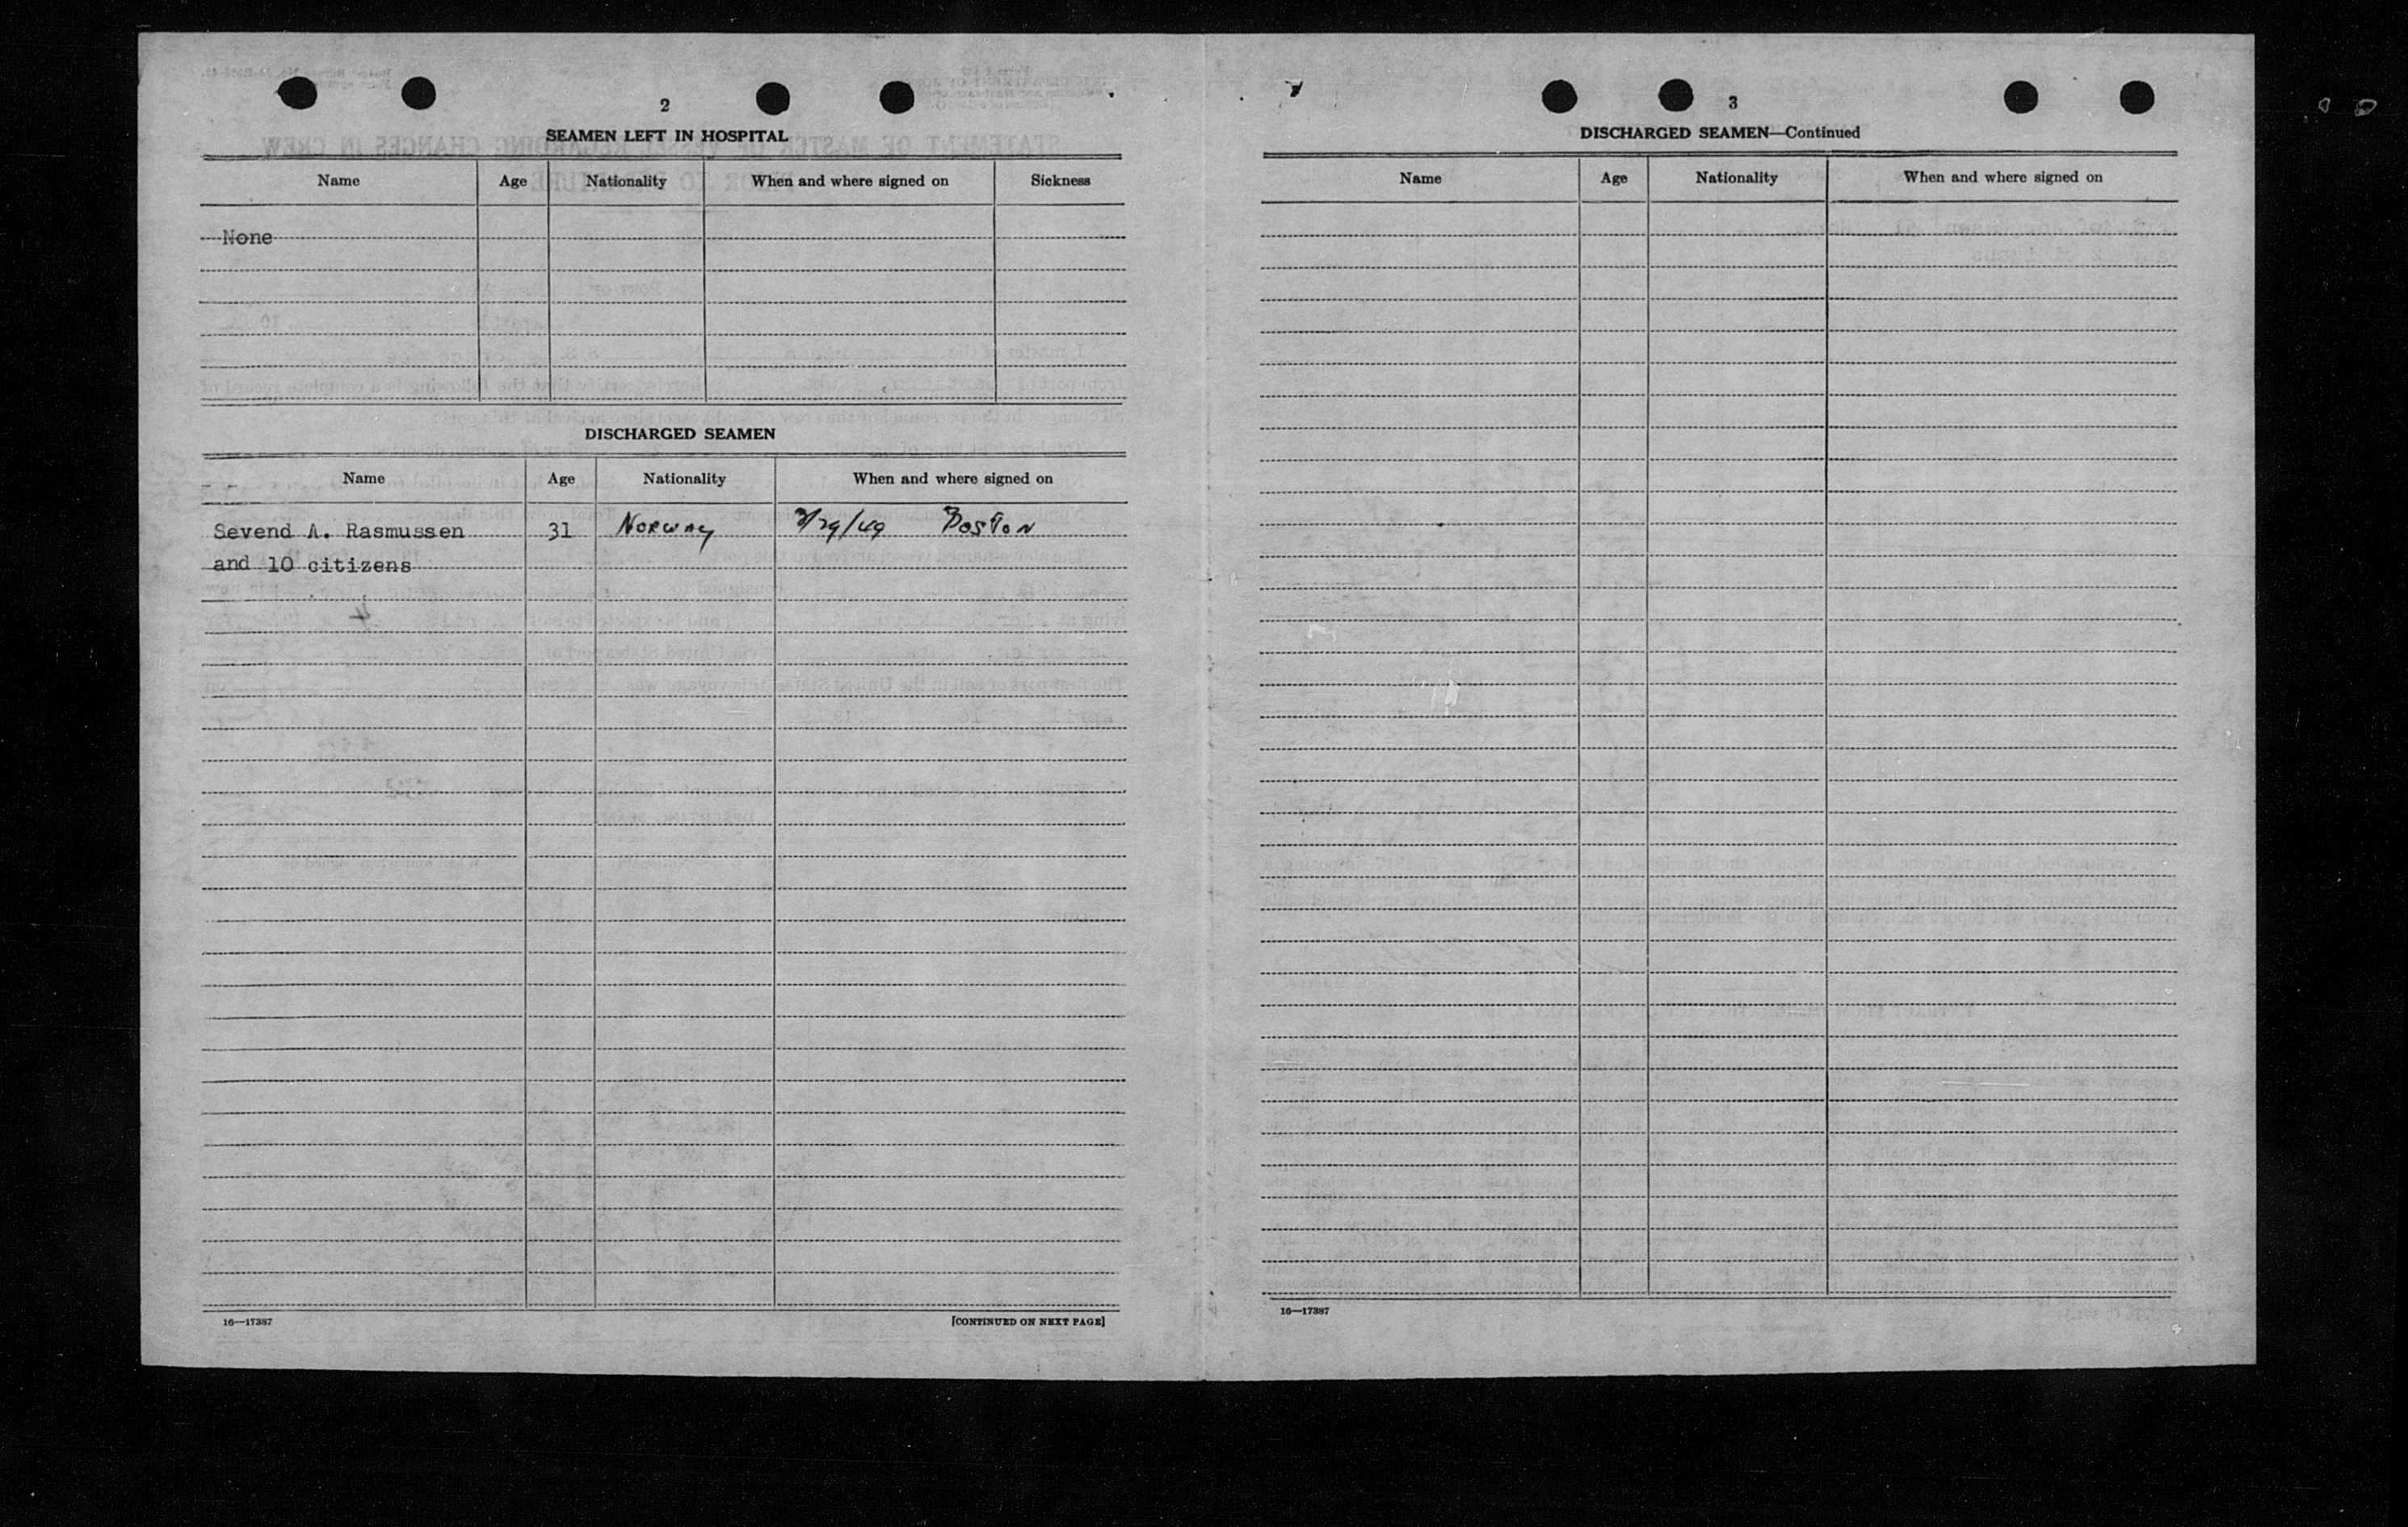 2
SEAMEN LEFT IN HOSPITAL
Name Age Nationality When and where signed on Sickness
None
DISCHARGED SEAMEN
Name Age Nationality When and where signed on
Sevend A. Rasmussen 31 Norway 3/29/49 Boston
and 10 citizens
16—17387 [CONTINUED ON NEXT PAGE]
3
DISCHARGED SEAMEN—Continued
Name Age Nationality When and where signed on
16—17387